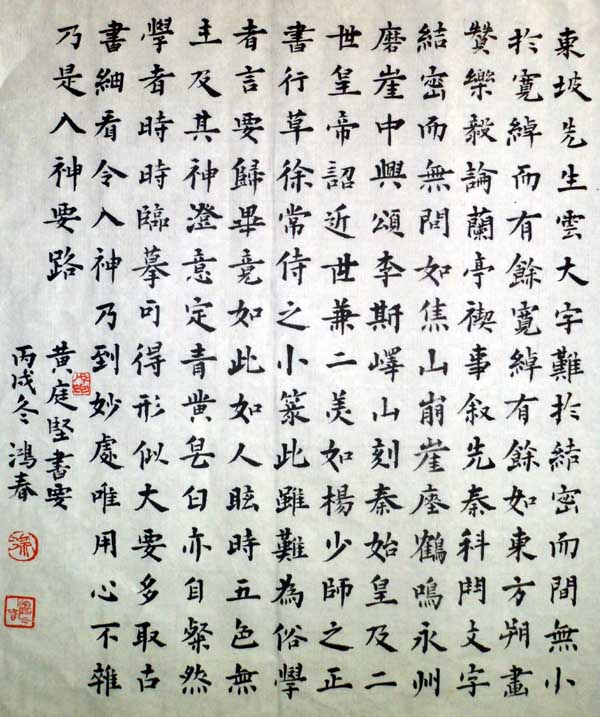 東坡先生雲大字難於結密而間無小
於寬綽而有餘寬綽有餘如東方朔畫
贊樂毅論蘭亭禊事叙先秦科鬥文字
結密而無問如焦山崩崖座鶴鳴永州
磨崖中興頌李斯嶧山刻秦始皇及二
世皇帝詔近世兼二美如楊少師之正
書行草徐常侍之小篆此雖難為俗學
者言要歸畢竟如此如人眩時五色無
主及其神澄意定青黄皂白亦自粲然
學者時時臨摹可得形似大要多取古
書細看令入神乃到妙處唯用心不雜
乃是入神要路
黄庭堅書要
丙戌冬鴻春